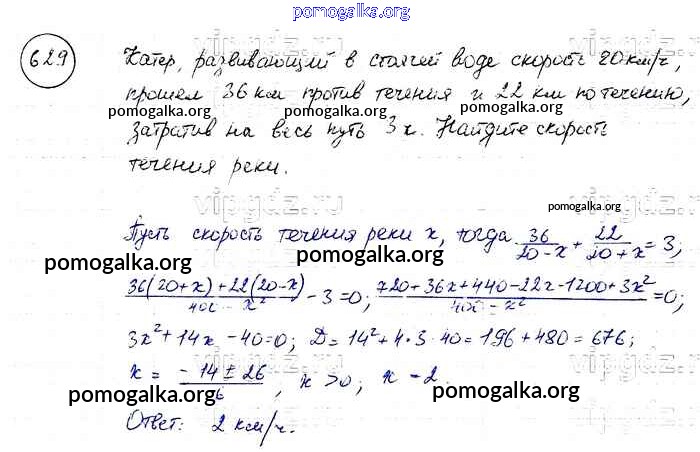 pomogalka.org
629 Катер, развивающий в стоячей воде скорость 20 км/ч,
прошел 36 км против течения и 22 км по течению,
pomogalka.org pomogalka.org
затратив на весь путь 3 ч. Найдите скорость
pomogalka.org
течения реки.
vipgdz.ru vipgdz.ru
pomogalka.org
Пусть скорость течения реки x, тогда 36/(20-x) + 22/(20+x) = 3;
pomogalka.org pomogalka.org
(36(20+x)+22(20-x))/(400-x²) - 3 = 0; (720+36x+440-22x-1200+3x²)/(400-x²) = 0;
3x²+14x-40=0; D = 14²+4·3·40 = 196+480 = 676;
x = (-14±26)/6, x > 0; x = 2.
vipgdz.ru vipgdz.ru
pomogalka.org pomogalka.org
Ответ: 2 км/ч.